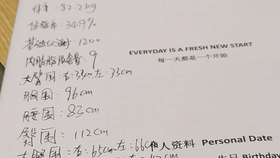 体重 82.2kg
体脂率 34.9%
基础代谢 1200
内脏脂肪指数 9
大臂围：右：33cm 左：33cm
胸围：96cm
腰围：83cm
臀围：112cm
大腿围：右：65cm 左：66cm
EVERYDAY IS A FRESH NEW START
每一天都是一个开始
个人资料 Personal Date
生日 Birthday